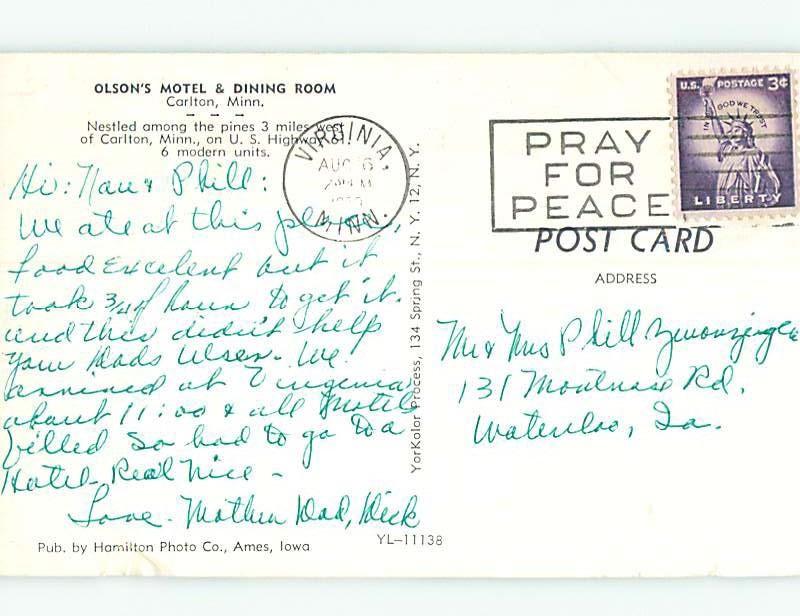 OLSON'S MOTEL & DINING ROOM
Carlton, Minn.
Nestled among the pines 3 miles west
of Carlton, Minn., on U. S. Highway 61.
6 modern units.
Hi: Nan & Phill:
We ate at this place,
food excelent but it
took 3/4 of hour to get it.
and this didn't help
your Dads Ulser. We
arrived at Virginia
about 11:00 & all Motel
filled so had to go to a
Hotel. Real Nice -
Love. Mother Dad, Dick
Pub. by Hamilton Photo Co., Ames, Iowa
YL-11138
YorKolor Process, 134 Spring St., N. Y. 12, N. Y.
VIRGINIA,
AUG 6
PM
MINN.
PRAY
FOR
PEACE
U.S. POSTAGE 3¢
IN GOD WE TRUST
LIBERTY
POST CARD
ADDRESS
Mr & Mrs Phill
131 Montrose Rd.
Waterloo, Ia.